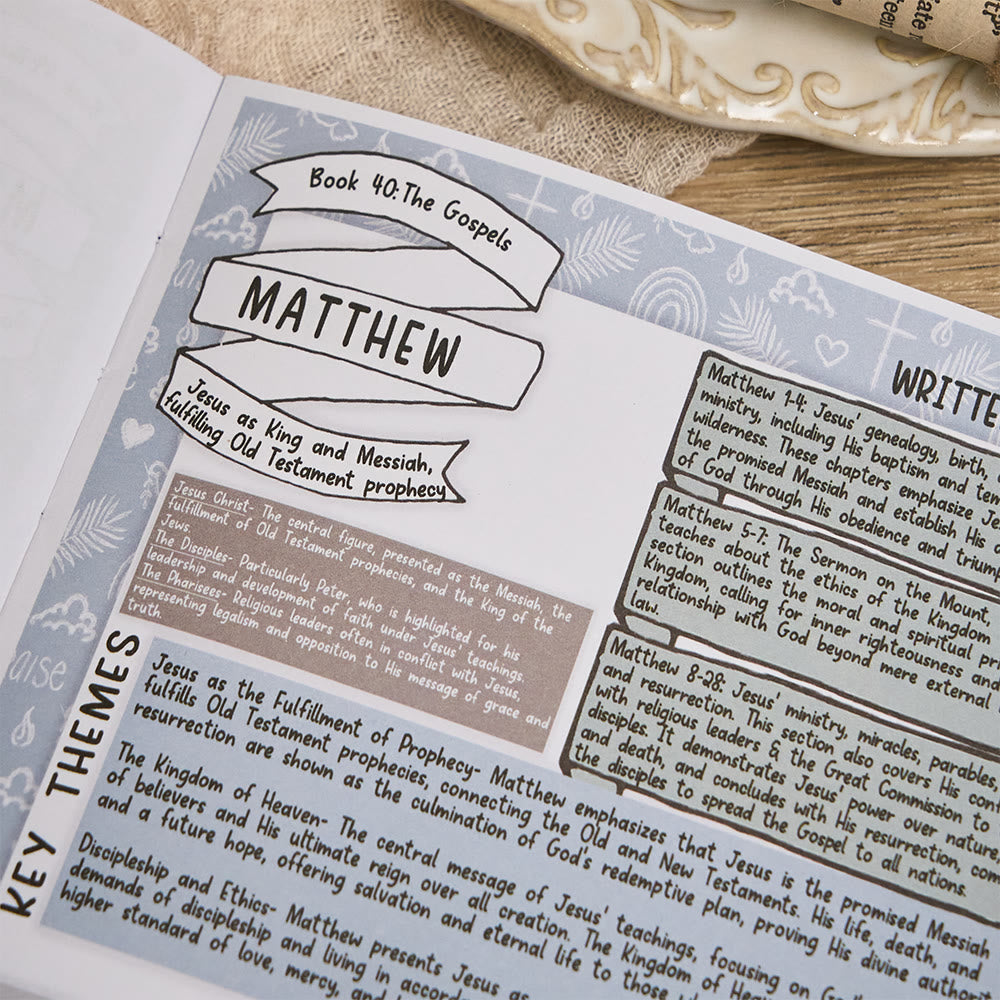 Book 40: The Gospels
MATTHEW
Jesus as King and Messiah,
fulfilling Old Testament prophecy
Jesus Christ- The central figure, presented as the Messiah, the
fulfillment of Old Testament prophecies, and the King of the
Jews.
The Disciples- Particularly Peter, who is highlighted for his
leadership and development of faith under Jesus' teachings.
The Pharisees- Religious leaders often in conflict with Jesus,
representing legalism and opposition to His message of grace and
truth.
KEY THEMES
Jesus as the Fulfillment of Prophecy- Matthew emphasizes that Jesus is the promised Messiah
fulfills Old Testament prophecies, connecting the Old and New Testaments. His life, death, and
resurrection are shown as the culmination of God's redemptive plan, proving His divine
The Kingdom of Heaven- The central message of Jesus' teachings, focusing on
of believers and His ultimate reign over all creation. The Kingdom of
and a future hope, offering salvation and eternal life to those
Discipleship and Ethics- Matthew presents Jesus as
demands of discipleship and living in
higher standard of love, mercy, and
Matthew 1-4: Jesus' genealogy, birth,
ministry, including His baptism and
wilderness. These chapters emphasize
the promised Messiah and establish His
of God through His obedience and
Matthew 5-7: The Sermon on the Mount,
teaches about the ethics of the Kingdom
section outlines the moral and spiritual
Kingdom, calling for inner righteousness and
relationship with God beyond mere external
law.
Matthew 8-28: Jesus' ministry, miracles, parables,
and resurrection. This section also covers His
with religious leaders & the Great Commission to
disciples. It demonstrates Jesus' power over nature,
and death, and concludes with His resurrection,
the disciples to spread the Gospel to all nations.